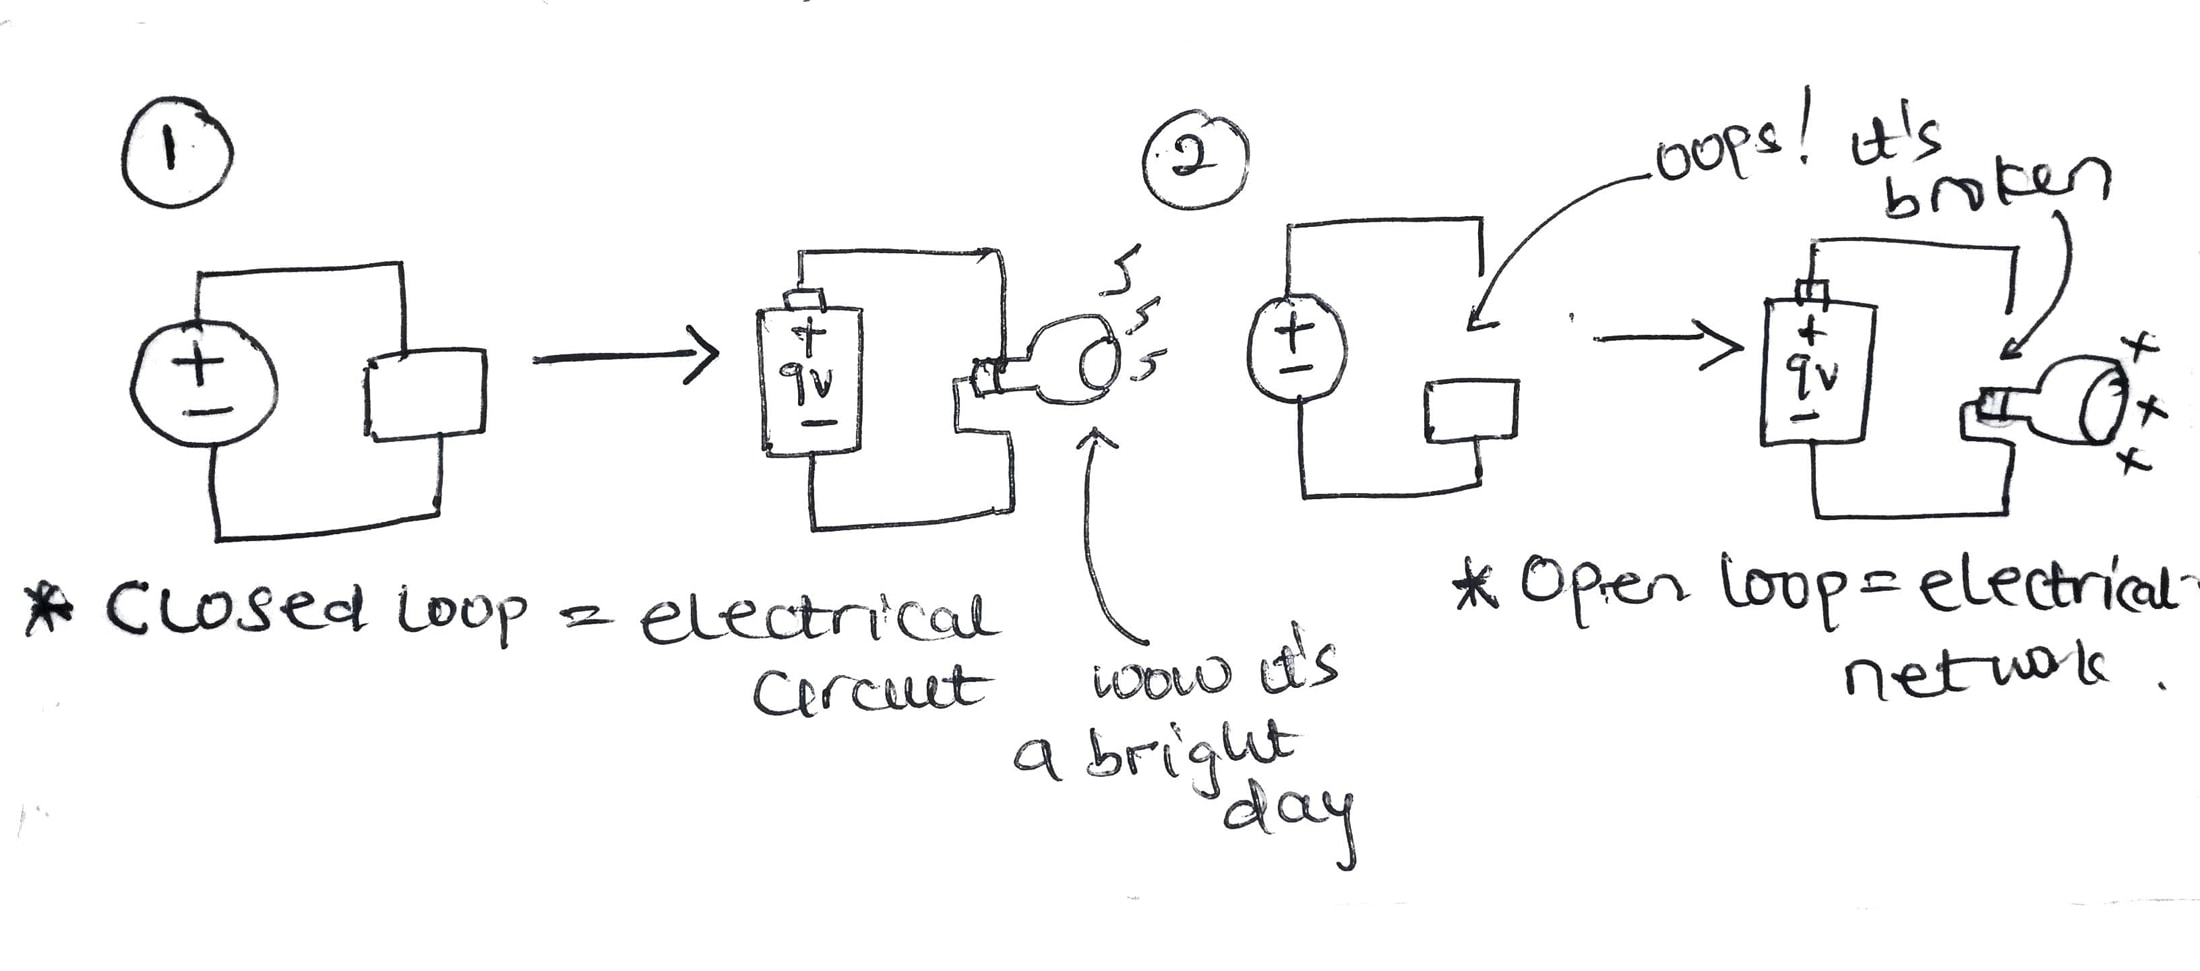 1
+
−
+
9V
−
* Closed loop = electrical
circuit
wow it's
a bright
day
2
oops! it's
broken
+
−
+
9V
−
* Open loop = electrical
network.